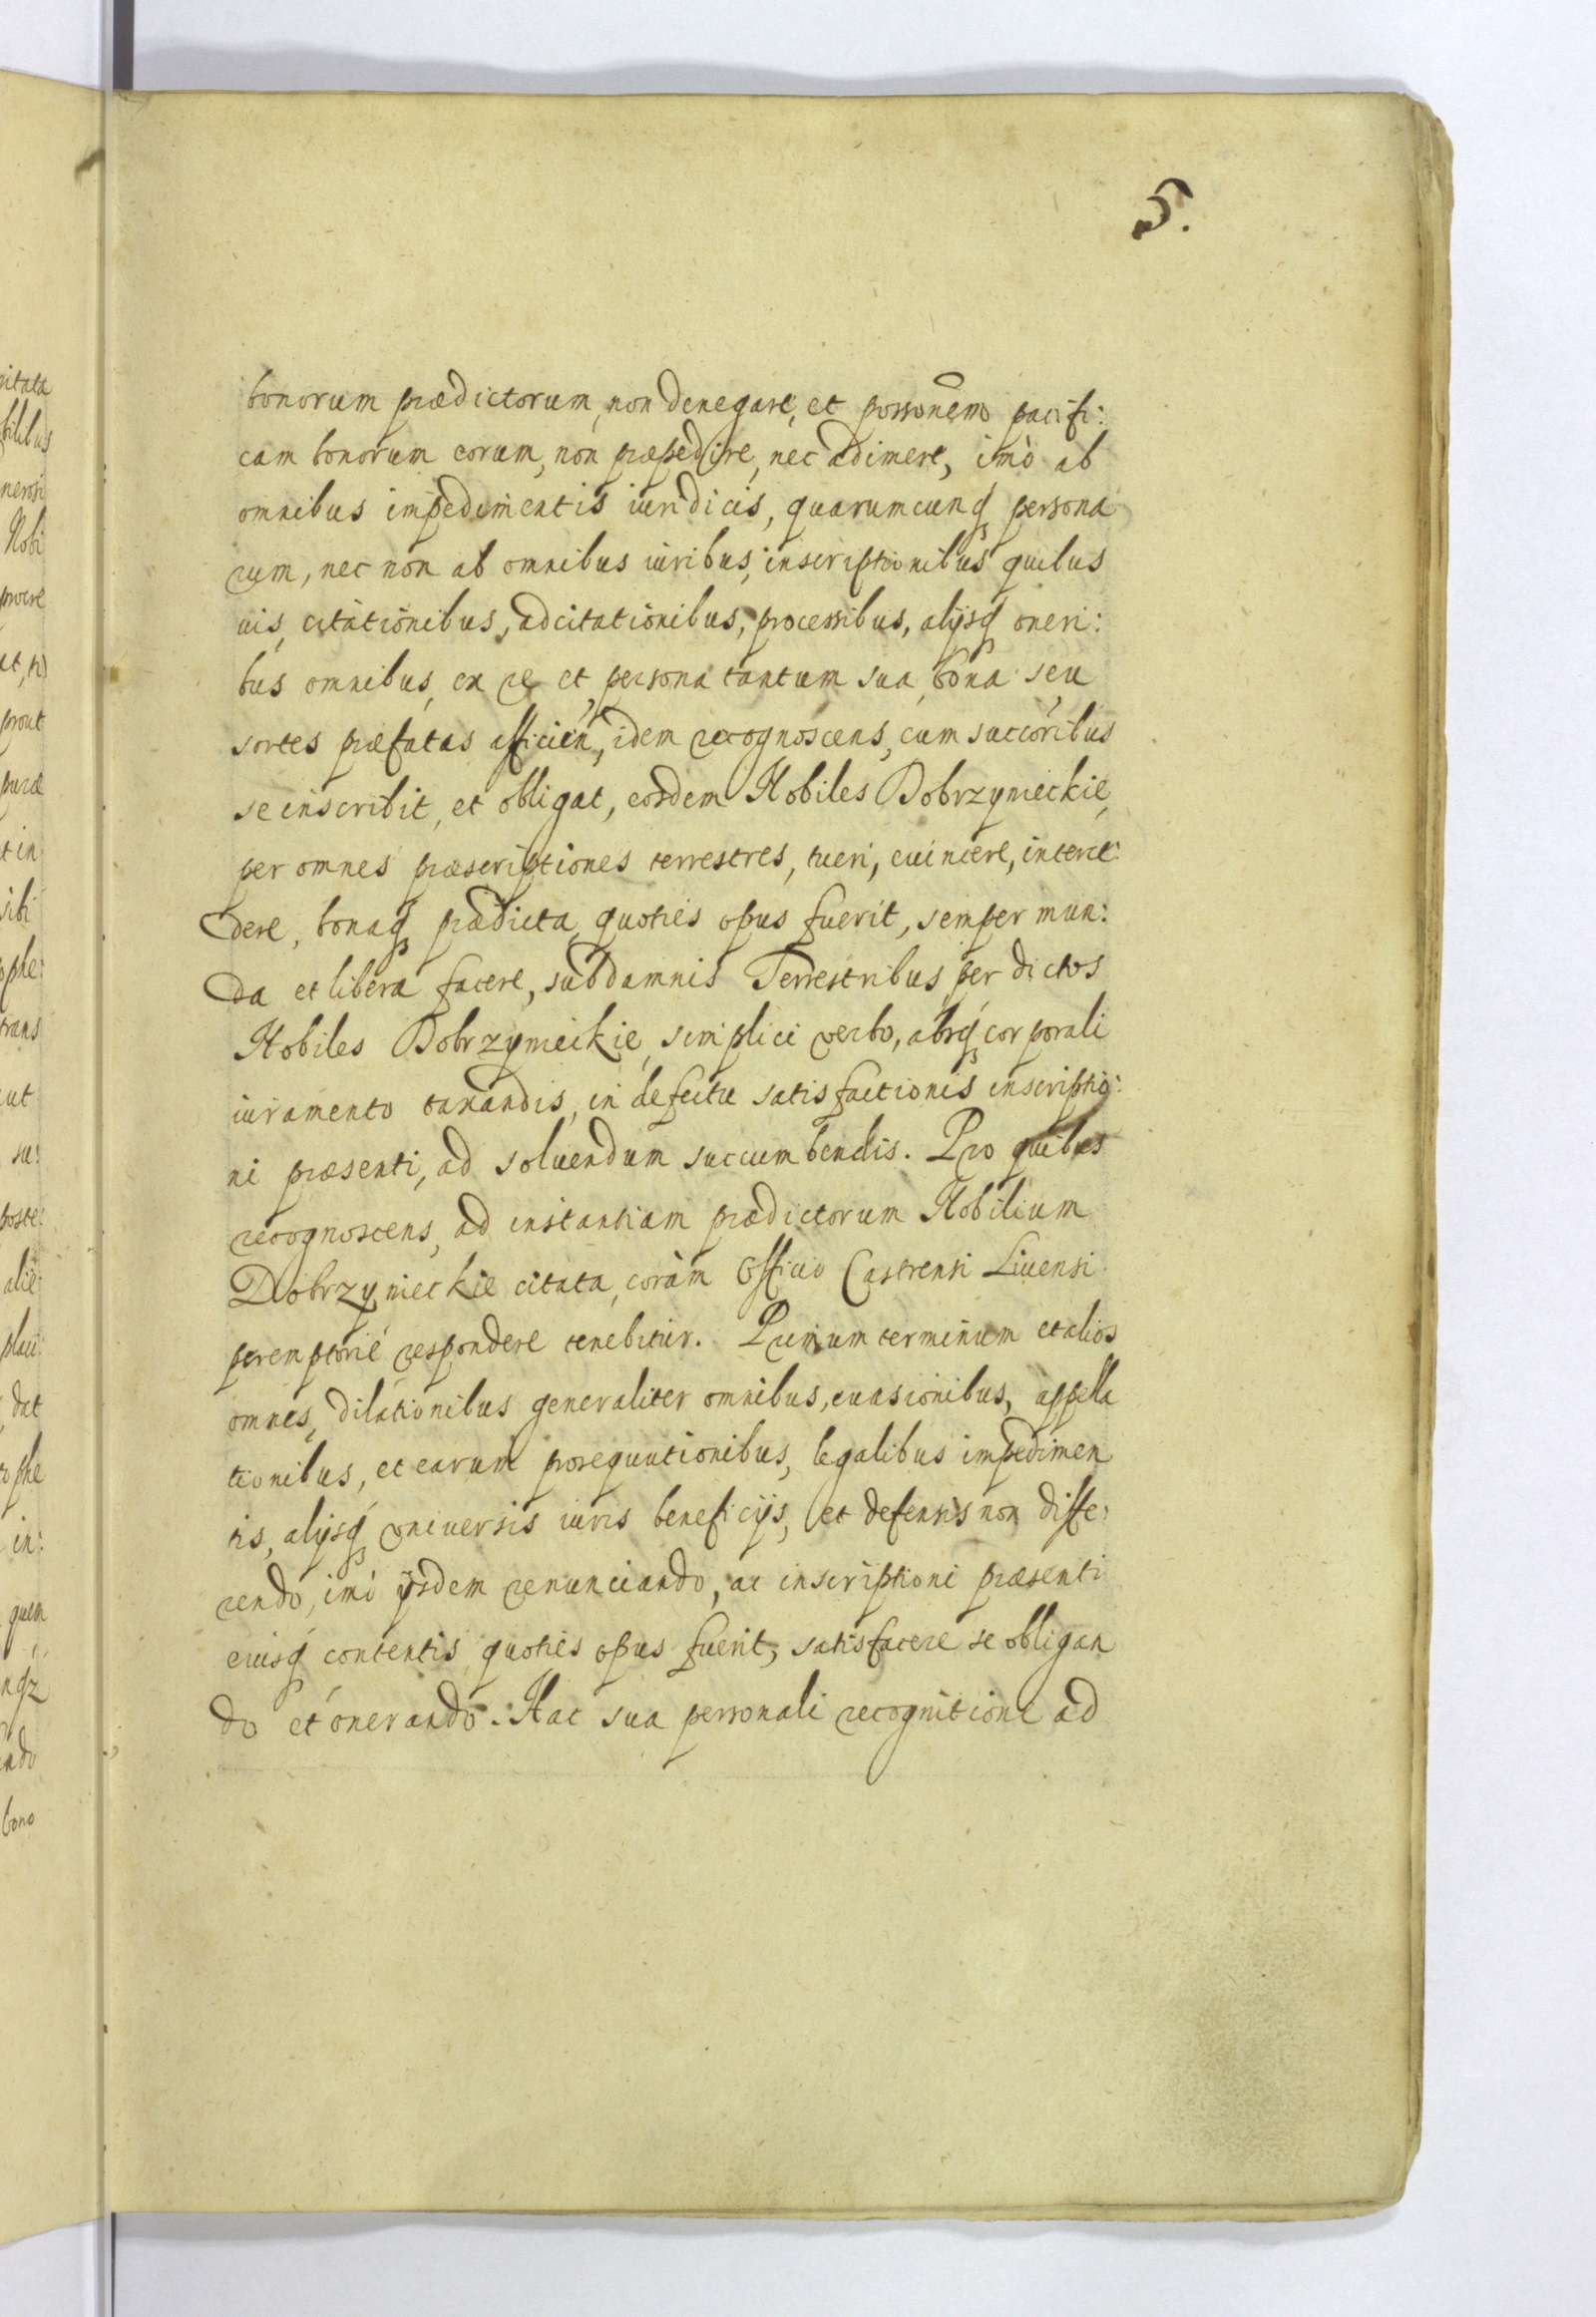 5.
bonorum prædictorum, non denegare, et possonem pacifi:
cam bonorum eorum, non præpedire, nec adimere, imò ab
omnibus impedimentis iuridicis, quarumcunq persona
rum, nec non ab omnibus iuribus, inscriptionibus quibus
uis, citationibus, adcitationibus, processibus, alijsq oneri:
bus omnibus, ex re et persona tantum sua, bona seu
sortes præfatas afficien, idem recognoscens, cum succoribus
se inscribit, et obligat, eosdem Nobiles Dobrzynieckie,
per omnes præscriptiones terrestres, tueri, euincere, interce:
dere, bonaq prædicta, quoties opus fuerit, semper mun:
da et libera facere, sub damnis Terrestribus per dictos
Nobiles Dobrzynieckie, simplici verbo, absq corporali
iuramento taxandis, in defectu satisfactionis inscriptio:
ni præsenti, ad soluendum succumbendis. Pro quibus
recognoscens, ad instantiam prædictorum Nobilium
Dobrzynieckie citata, coram Officio Castrensi Liuensi
peremptorie respondere tenebitur. Primum terminum et alios
omnes, dilationibus generaliter omnibus, euasionibus, appella
tionibus, et earum prosequutionibus, legalibus impedimen
tis, alijsq vniuersis iuris beneficijs, et defensis non diffe:
rendo, imò ijsdem renunciando, ac inscriptioni præsenti
eiusq contentis quoties opus fuerit, satisfacere se obligan
do et onerando. Hac sua personali recognitione ad